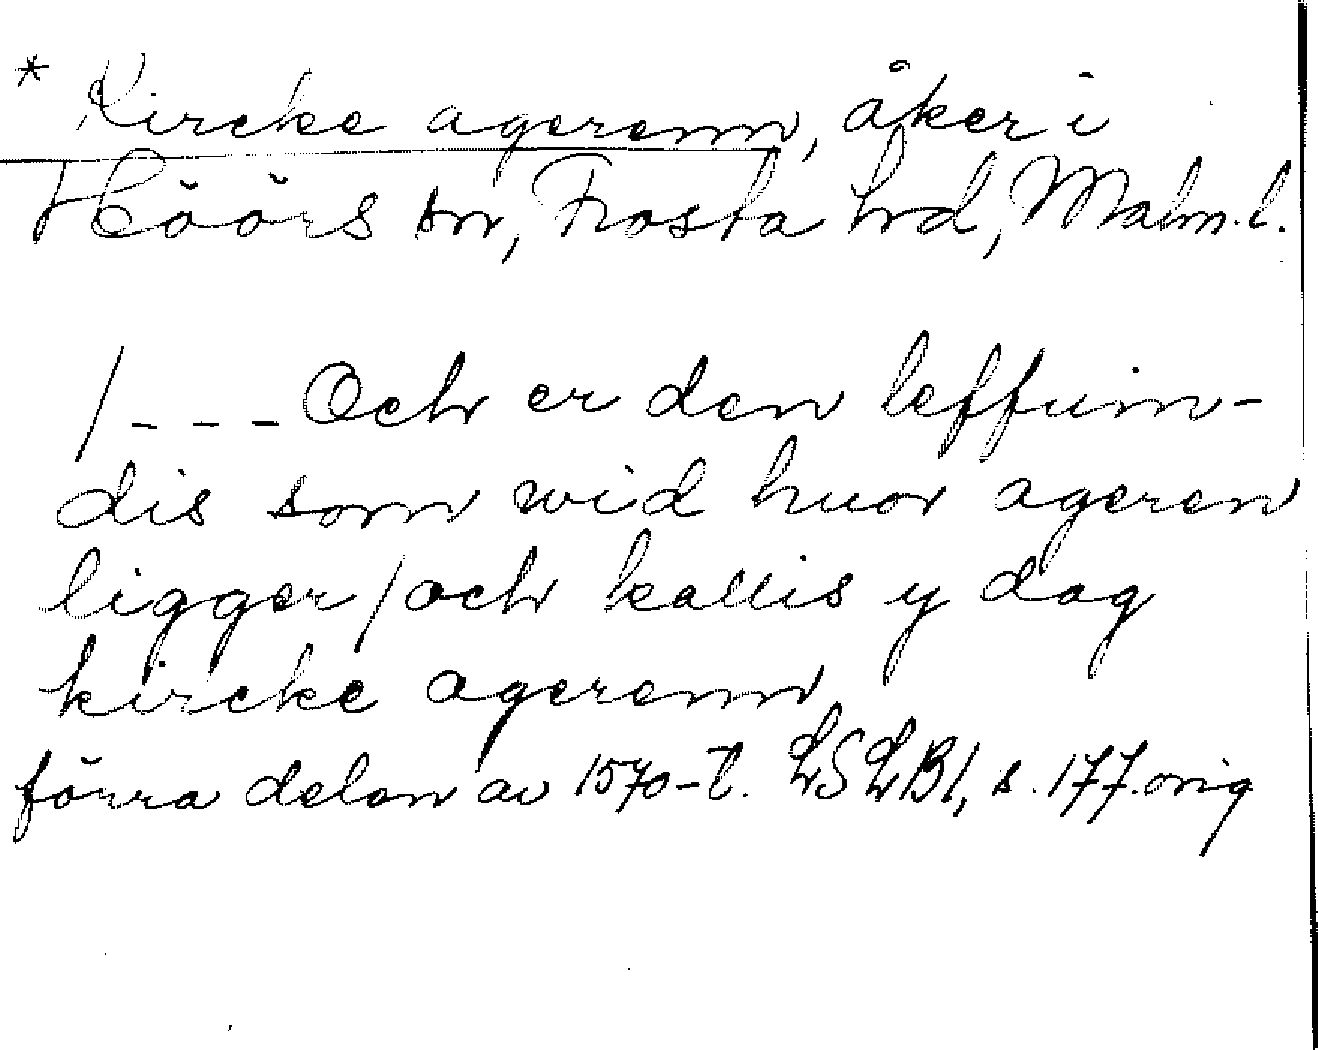 * Kircke agerenn, åker i
Höörs sn, Frosta hrd, Malm. l.
/ - - - Och er den leffuin-
dis som wid huor ageren
ligger / och kallis y dag
kircke agerenn
förra delen av 1570-t. LSLB1, s. 177. orig